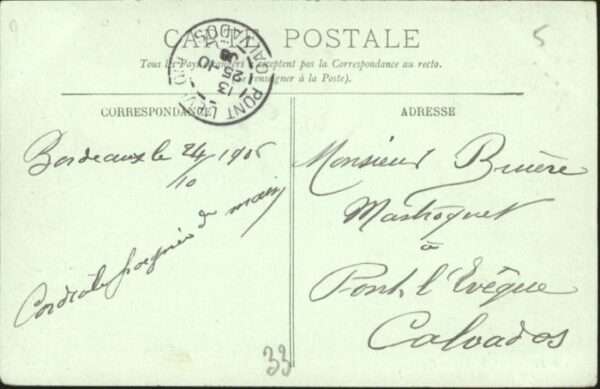 CARTE POSTALE
Tous les Pays étrangers n'acceptent pas la Correspondance au recto.
(Se renseigner à la Poste).
PONT L'EVEQUE
CALVADOS
13
25-10
CORRESPONDANCE
ADRESSE
Bordeaux le 24/10 1906
Cordiale poignée de main
Monsieur Bruère
Mastroquet
à
Pont l'Evêque
Calvados
33
5